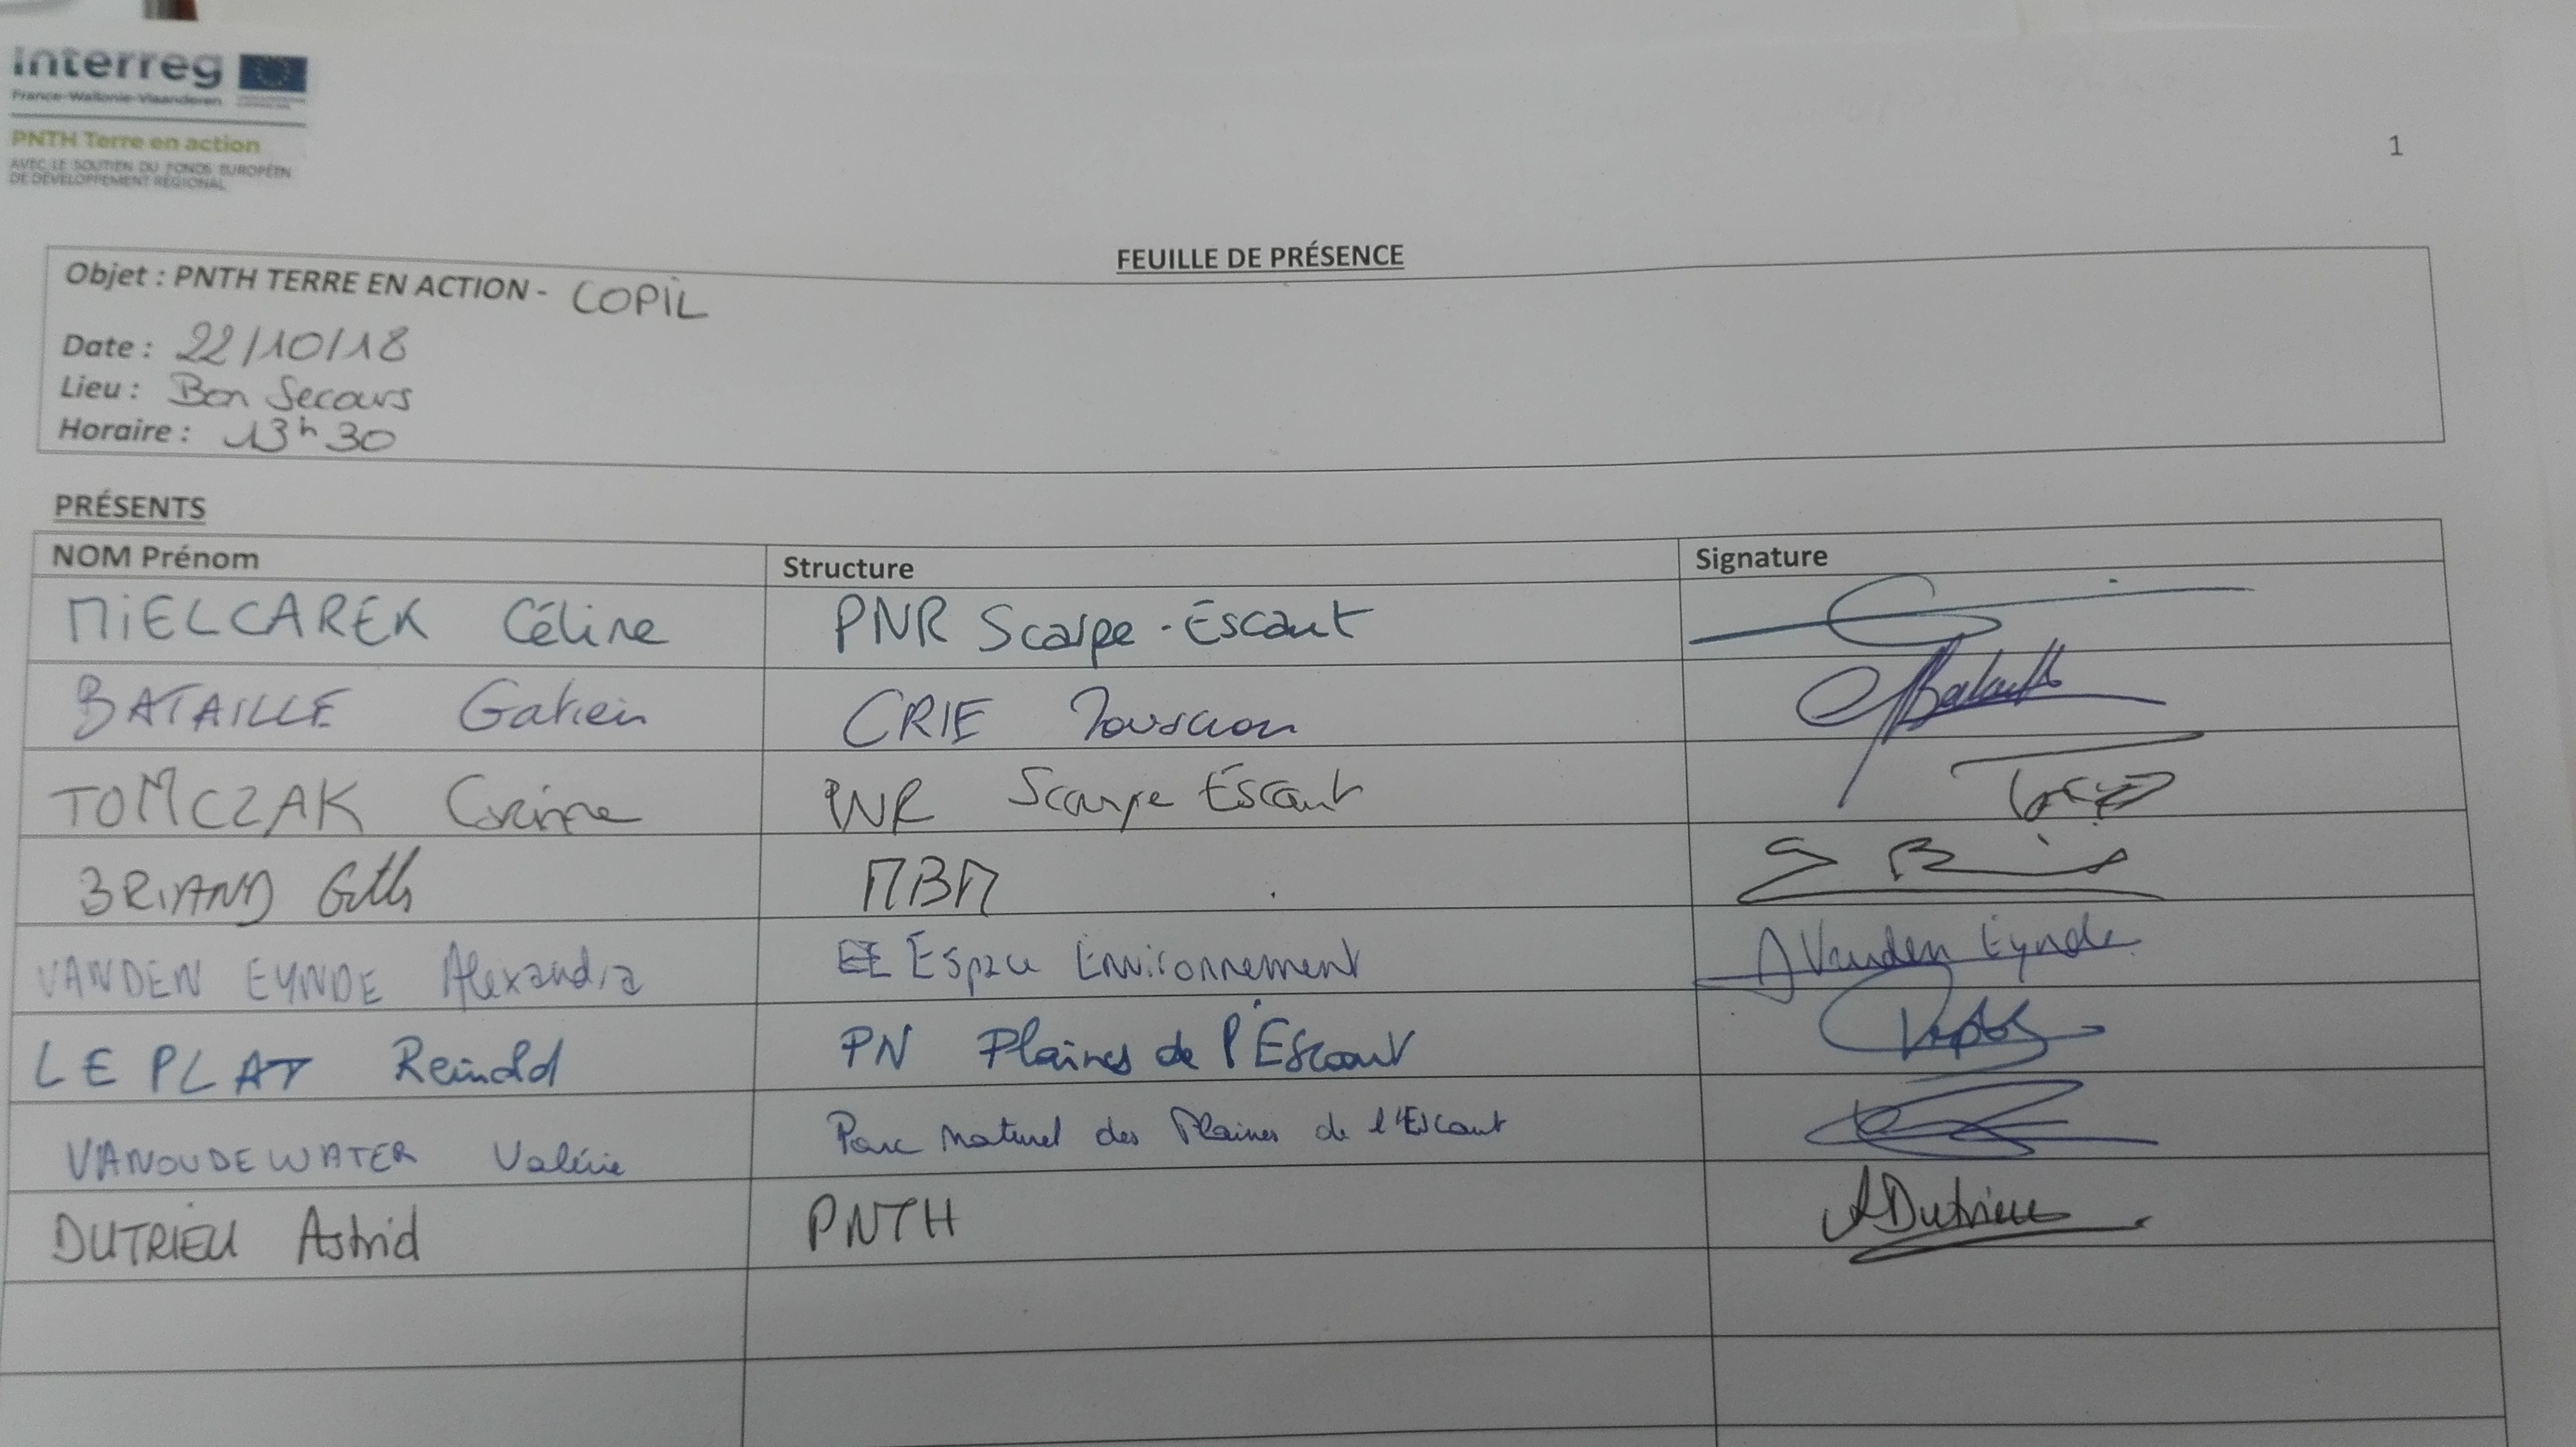 Interreg
France-Wallonie-Vlaanderen
PNTH Terre en action
AVEC LE SOUTIEN DU FONDS EUROPÉEN
DE DÉVELOPPEMENT RÉGIONAL
1
FEUILLE DE PRÉSENCE
Objet : PNTH TERRE EN ACTION - COPIL
Date : 22/10/18
Lieu : Bon Secours
Horaire : 13h30
PRÉSENTS
NOM Prénom Structure Signature
MIELCAREK Céline PNR Scarpe-Escaut
BATAILLE Gatien CRIE Mouscron Bataille
TOMCZAK Corinne PNR Scarpe Escaut
BRIAND MBM
VANDEN EYNDE Alexandra EE Espace Environnement A Vanden Eynde
LEPLAT Reinold PN Plaines de l'Escaut
VANOUDEWATER Valérie Parc naturel des Plaines de l'Escaut
DUTRIEU Astrid PNTH ADutrieu